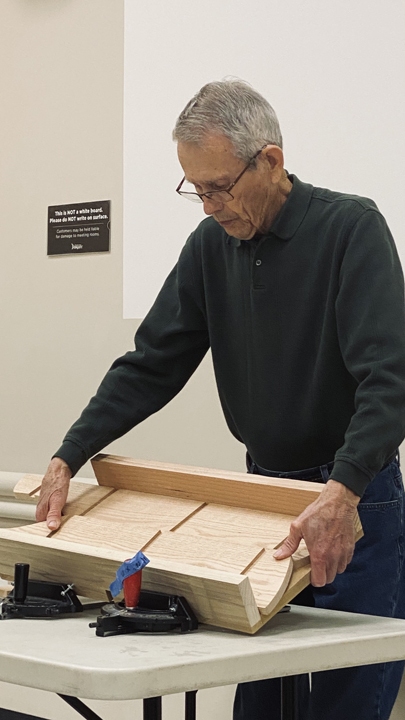 This is NOT a white board.
Please do NOT write on surface.
Customers may be held liable
for damage to meeting rooms.